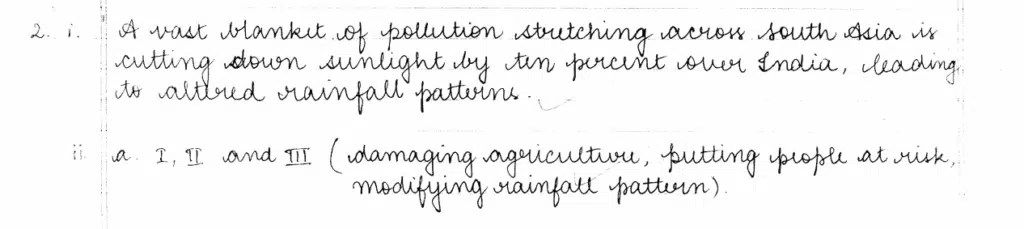 2. i. A vast blanket of pollution stretching across South Asia is
cutting down sunlight by ten percent over India, leading
to altered rainfall patterns.
ii. a. I, II and III (damaging agriculture, putting people at risk,
modifying rainfall pattern).